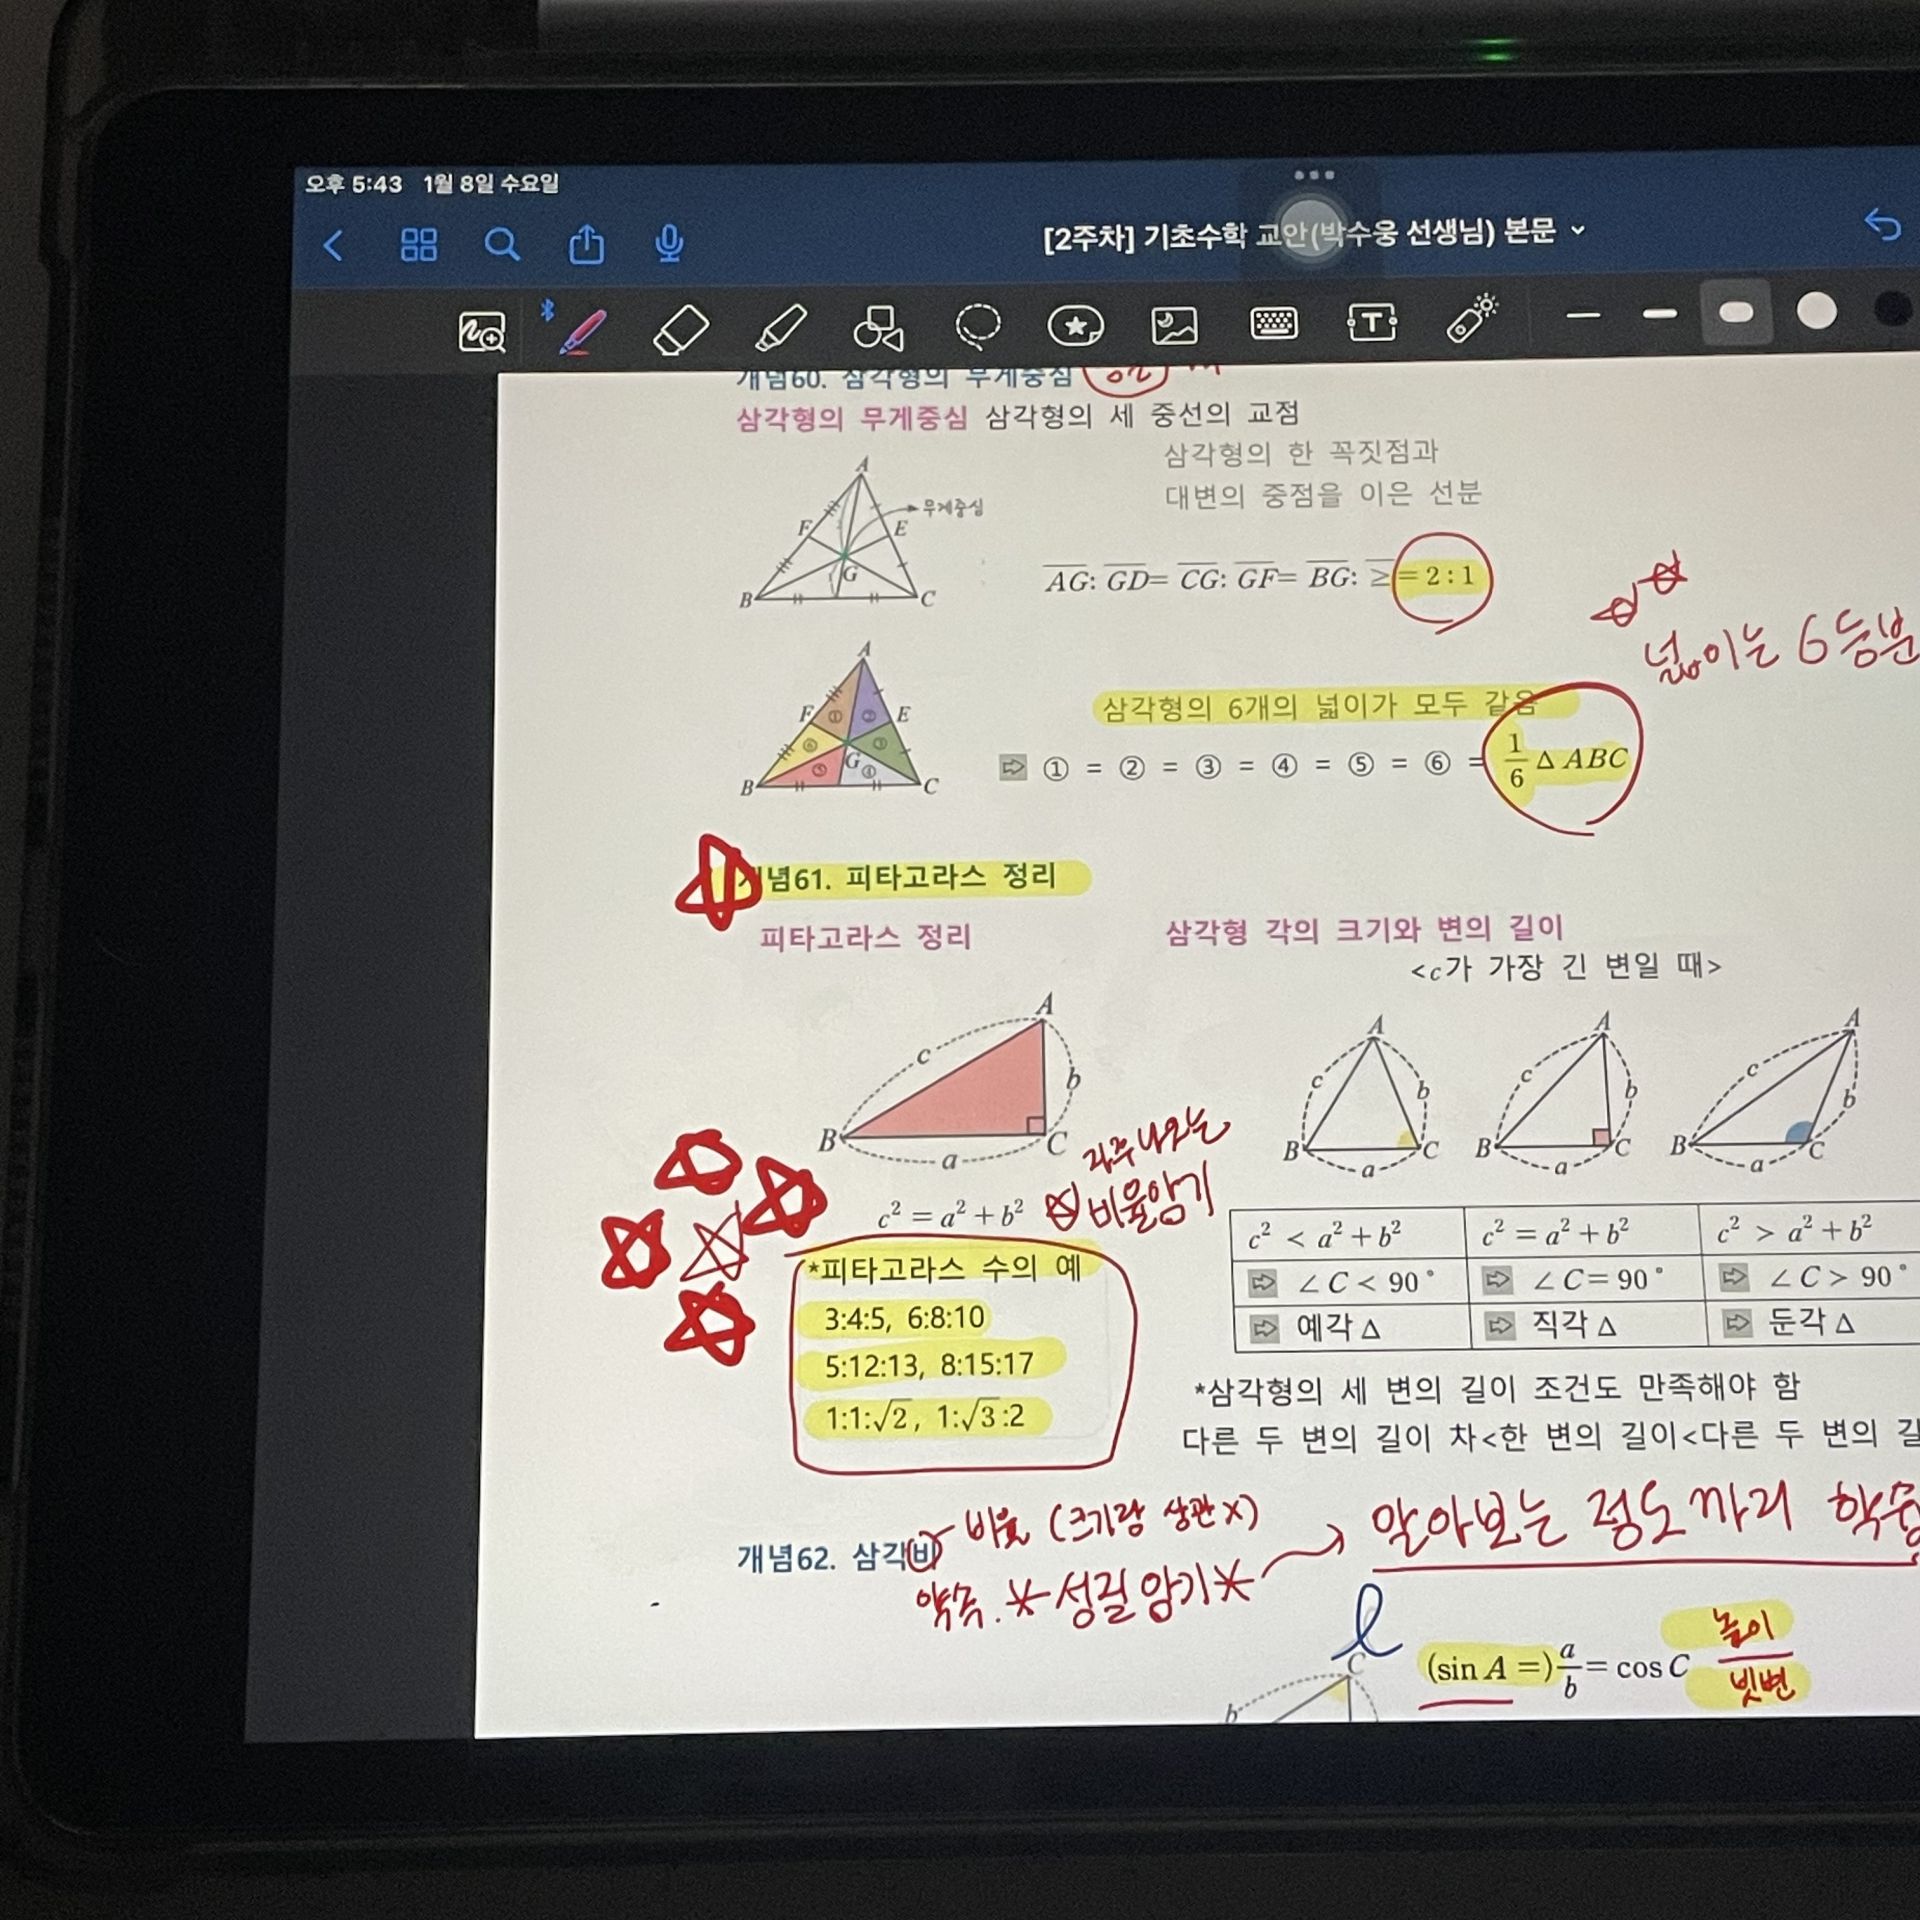 오후 5:43 1월 8일 수요일
[2주차] 기초수학 교안(박수웅 선생님) 본문
개념60. 삼각형의 무게중심
삼각형의 무게중심 삼각형의 세 중선의 교점
삼각형의 한 꼭짓점과
대변의 중점을 이은 선분
A
무게중심
F E
G
B C
AG: GD= CG: GF= BG: ≥ = 2 : 1
넓이는 6등분
A
F ① ② E
⑥ ③
⑤ G ④
B C
삼각형의 6개의 넓이가 모두 같음
⇨ ① = ② = ③ = ④ = ⑤ = ⑥ = 1/6 △ ABC
념61. 피타고라스 정리
피타고라스 정리
삼각형 각의 크기와 변의 길이
<c가 가장 긴 변일 때>
A
c
b
B C
a
A c b B a C
A c b B a C
A c b B a C
자주 나오는
비율암기
c² = a² + b²
*피타고라스 수의 예
3:4:5, 6:8:10
5:12:13, 8:15:17
1:1:√2, 1:√3:2
c² < a² + b² c² = a² + b² c² > a² + b²
⇨ ∠C < 90° ⇨ ∠C = 90° ⇨ ∠C > 90°
⇨ 예각△ ⇨ 직각△ ⇨ 둔각△
*삼각형의 세 변의 길이 조건도 만족해야 함
다른 두 변의 길이 차<한 변의 길이<다른 두 변의 길
비율 (크기랑 상관X)
알아보는 정도까지 학습
개념62. 삼각비
약속. *성질암기*
l
C
b
(sin A =) a/b = cos C
높이
빗변